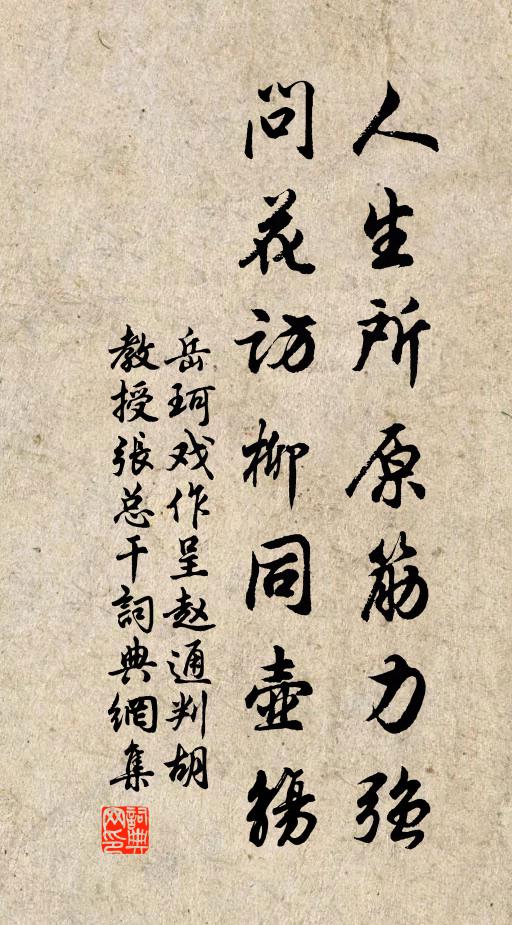 人生所原筋力强
问花访柳同壶觞
岳珂戏作呈赵通判胡
教授张总干詞典網集
詞典
网印